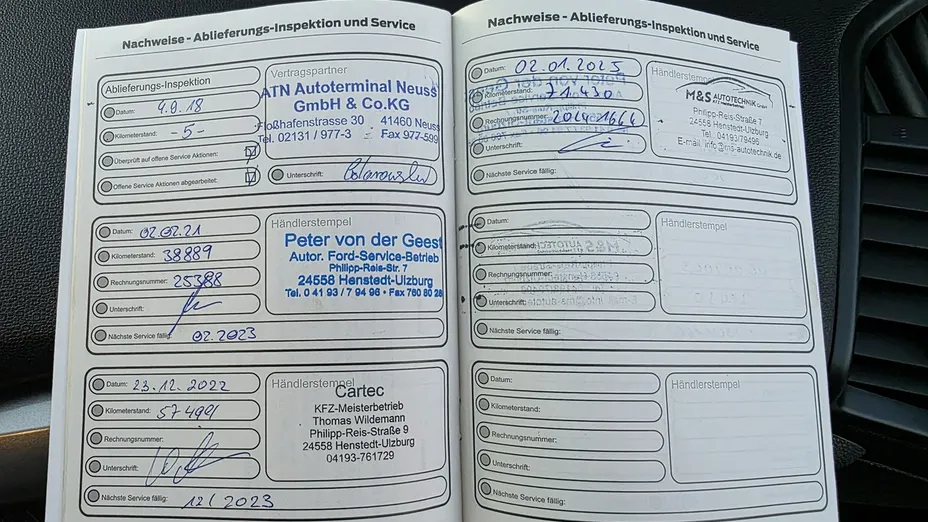 Nachweise - Ablieferungs-Inspektion und Service
Ablieferungs-Inspektion
Datum: 4.9.18
Kilometerstand: -5-
Überprüft auf offene Service Aktionen:
Offene Service Aktionen abgearbeitet:
Vertragspartner
ATN Autoterminal Neuss
GmbH & Co.KG
Floßhafenstrasse 30 41460 Neuss
Tel. 02131 / 977-3 - Fax 977-599
Unterschrift:
Datum: 02.02.21
Kilometerstand: 38889
Rechnungsnummer: 25388
Unterschrift:
Nächste Service fällig: 02.2023
Händlerstempel
Peter von der Geest
Autor. Ford-Service-Betrieb
Philipp-Reis-Str. 7
24558 Henstedt-Ulzburg
Tel. 0 41 93 / 7 94 96 • Fax 760 80 28
Datum: 23.12.2022
Kilometerstand: 57499
Rechnungsnummer:
Unterschrift:
Nächste Service fällig: 12/2023
Händlerstempel
Cartec
KFZ-Meisterbetrieb
Thomas Wildemann
Philipp-Reis-Straße 9
24558 Henstedt-Ulzburg
04193-761729
Nachweise - Ablieferungs-Inspektion und Service
Datum: 02.01.2025
Kilometerstand: 71.430
Rechnungsnummer: 20241664
Unterschrift:
Nächste Service fällig:
Händlerstempel
M&S AUTOTECHNIK GmbH
Philipp-Reis-Straße 7
24558 Henstedt-Ulzburg
Tel. 04193/79496
E-mail: info@ms-autotechnik.de
Datum:
Kilometerstand:
Rechnungsnummer:
Unterschrift:
Nächste Service fällig:
Händlerstempel
Datum:
Kilometerstand:
Rechnungsnummer:
Unterschrift:
Nächste Service fällig:
Händlerstempel